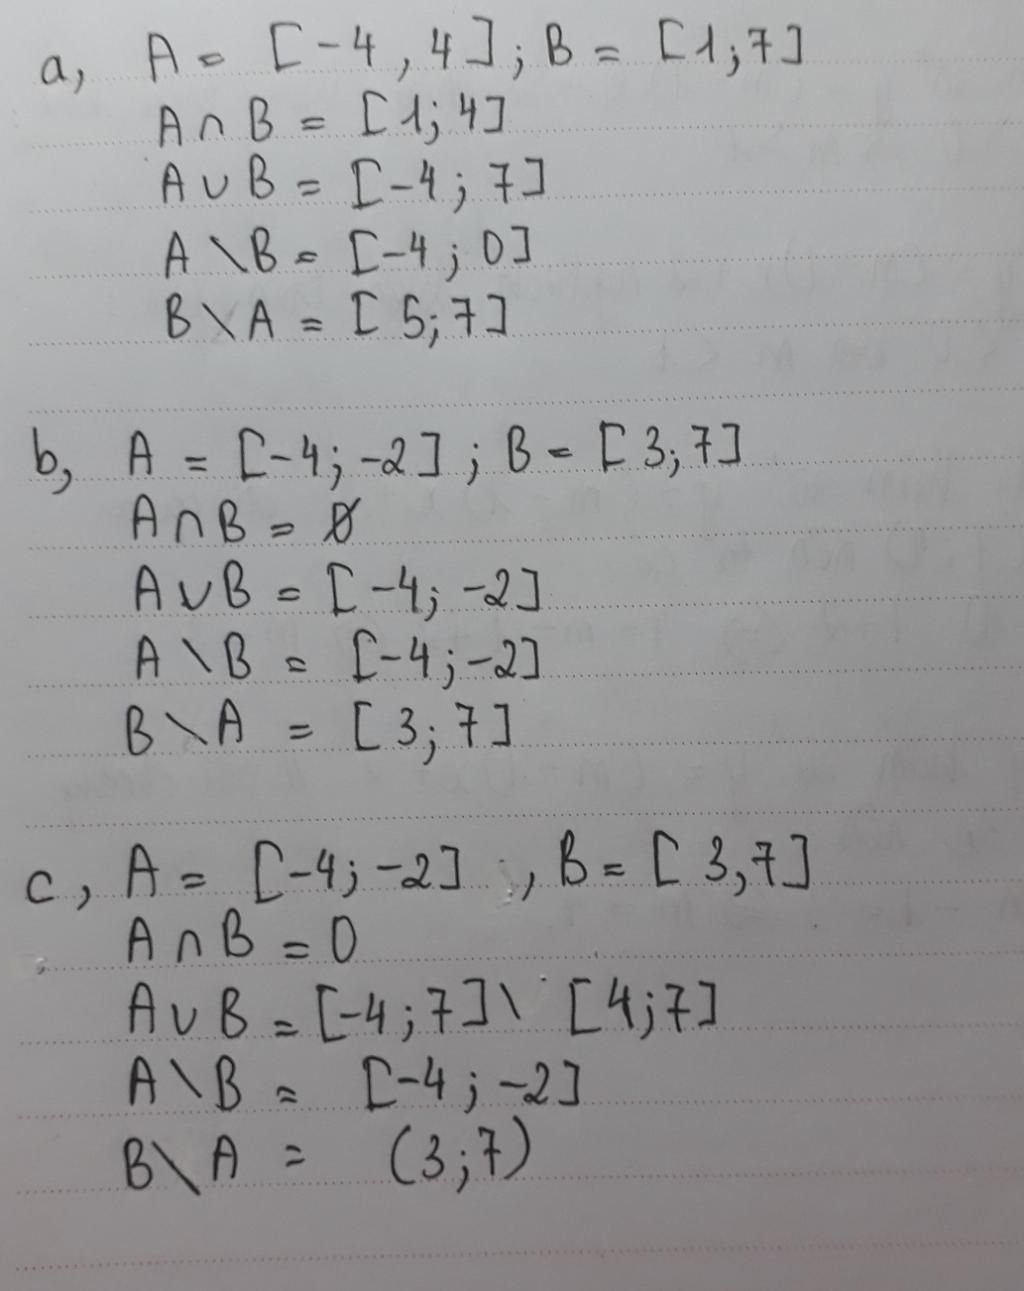 a, A = [-4, 4]; B = [1; 7]
A ∩ B = [1; 4]
A ∪ B = [-4; 7]
A \ B = [-4; 0]
B \ A = [5; 7]
b, A = [-4; -2]; B = [3; 7]
A ∩ B = ∅
A ∪ B = [-4; -2]
A \ B = [-4; -2]
B \ A = [3; 7]
c, A = [-4; -2], B = [3, 7]
A ∩ B = 0
A ∪ B = [-4; 7] \ [4; 7]
A \ B = [-4; -2]
B \ A = (3; 7)